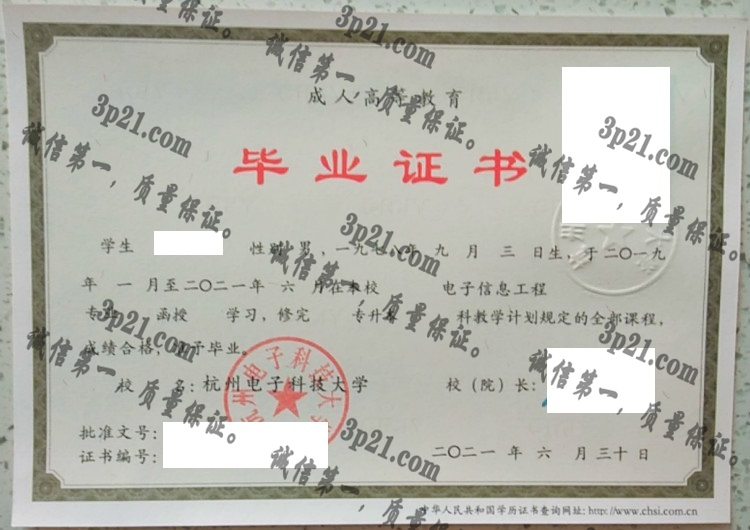 成人高等教育
毕业证书
学生 性别 男，一九七八年 九 月 三 日生，于二〇一九
年 一 月至二〇二一年 六 月在本校 电子信息工程
专业 函授 学习，修完 专升本 科教学计划规定的全部课程，
成绩合格，准予毕业。
校 名：杭州电子科技大学 校（院）长：
批准文号：
证书编号： 二〇二一年 六 月 三十 日
中华人民共和国学历证书查询网址: http://www.chsi.com.cn
杭州电子科技大学
3p21.com
诚信第一，质量保证。
3p21.com
诚信第一，质量保证。
3p21.com
诚信第一，质量保证。
3p21.com
诚信第一，质量保证。
3p21.com
诚信第一，质量保证。
3p21.com
诚信第一，质量保证。
3p21.com
诚信第一，质量保证。
3p21.com
诚信第一，质量保证。